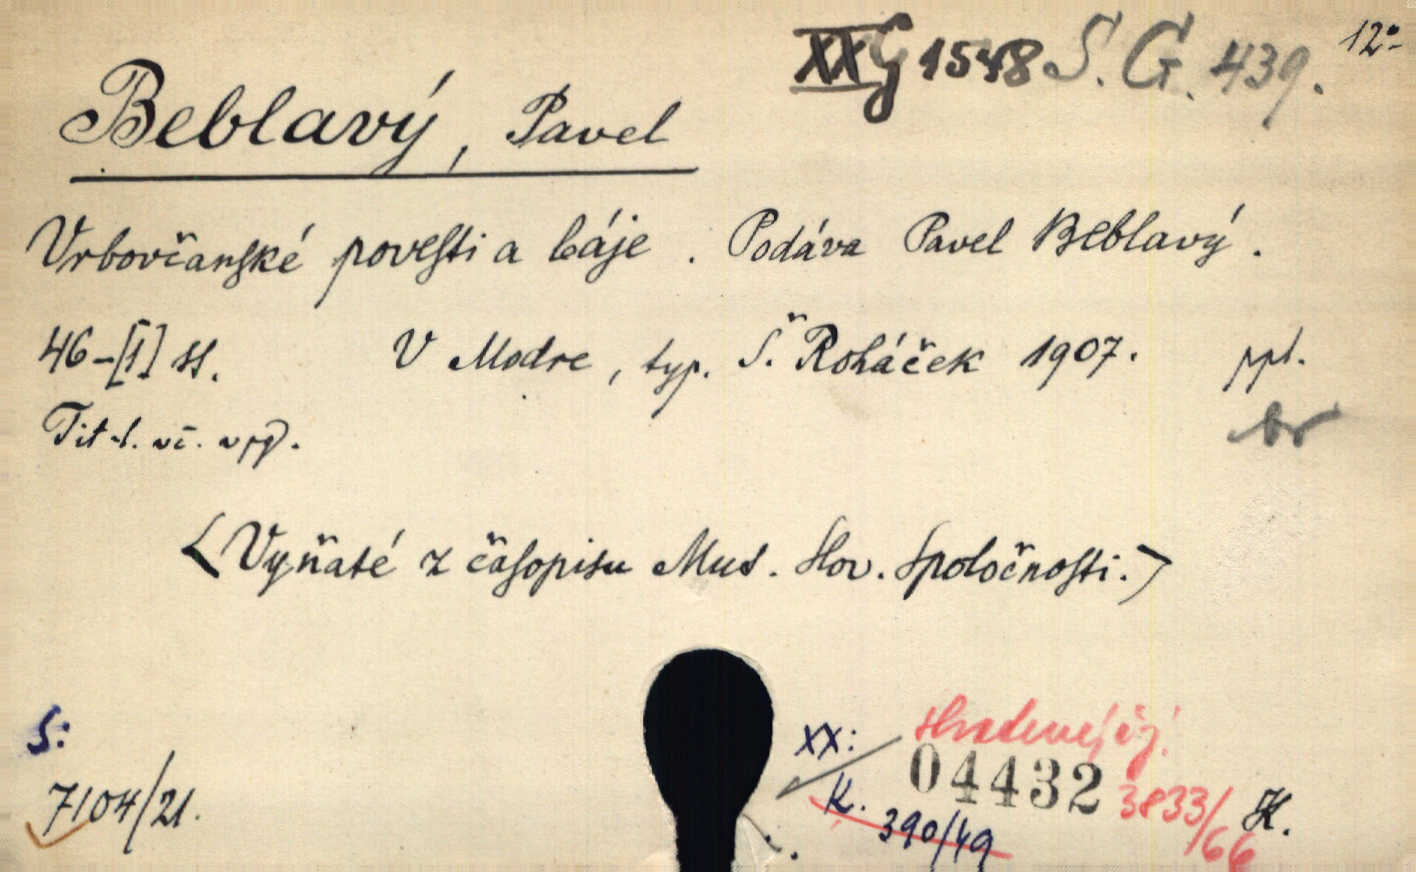 XXG 1548 S. G. 439. 12°
Beblavý, Pavel
Vrbovčanské povesti a báje. Podáva Pavel Beblavý.
46-[1] ss. V Modre, typ. Š. Roháček 1907. ppl.
br
Tit.
<Vyňaté z časopisu Mus. Slov. Spoločnosti.>
S:
XX:
04432
7104/21. K. 390/49 3833/66 K.